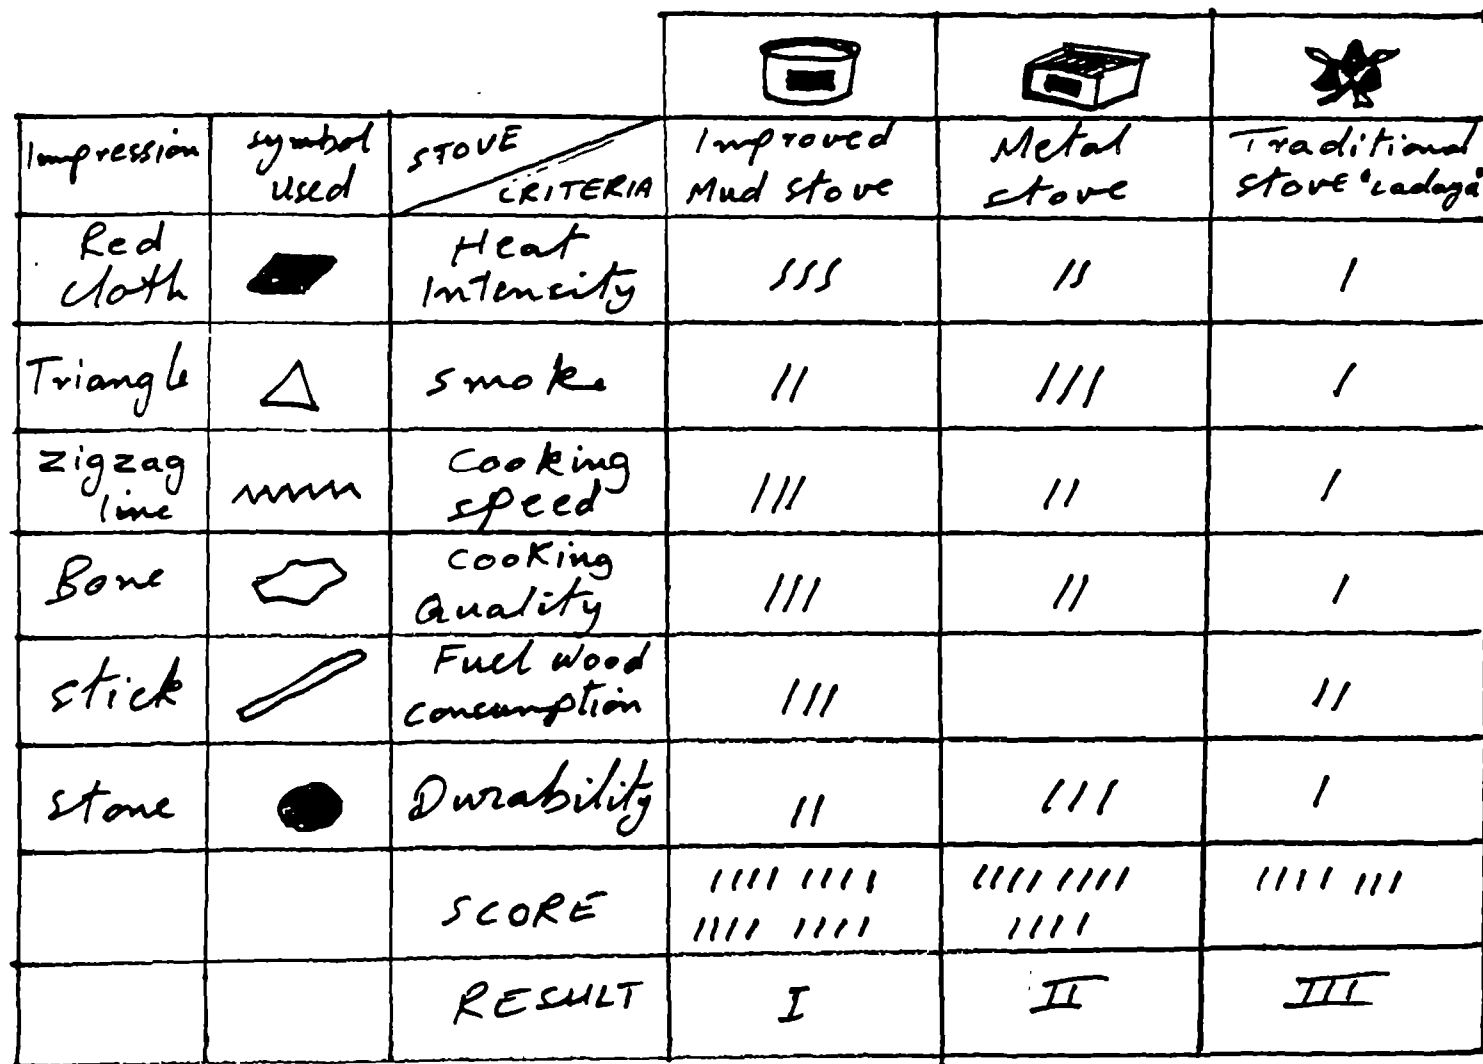 Impression symbol used STOVE CRITERIA Improved Mud stove Metal stove Traditional stove "Ladaga"
Red cloth Heat Intencity /// // /
Triangle smoke // /// /
zigzag line cooking speed /// // /
Bone cooking Quality /// // /
stick Fuel wood consumption /// //
stone Durability // /// /
SCORE //// //// //// //// //// //// //// //// ///
RESULT I II III